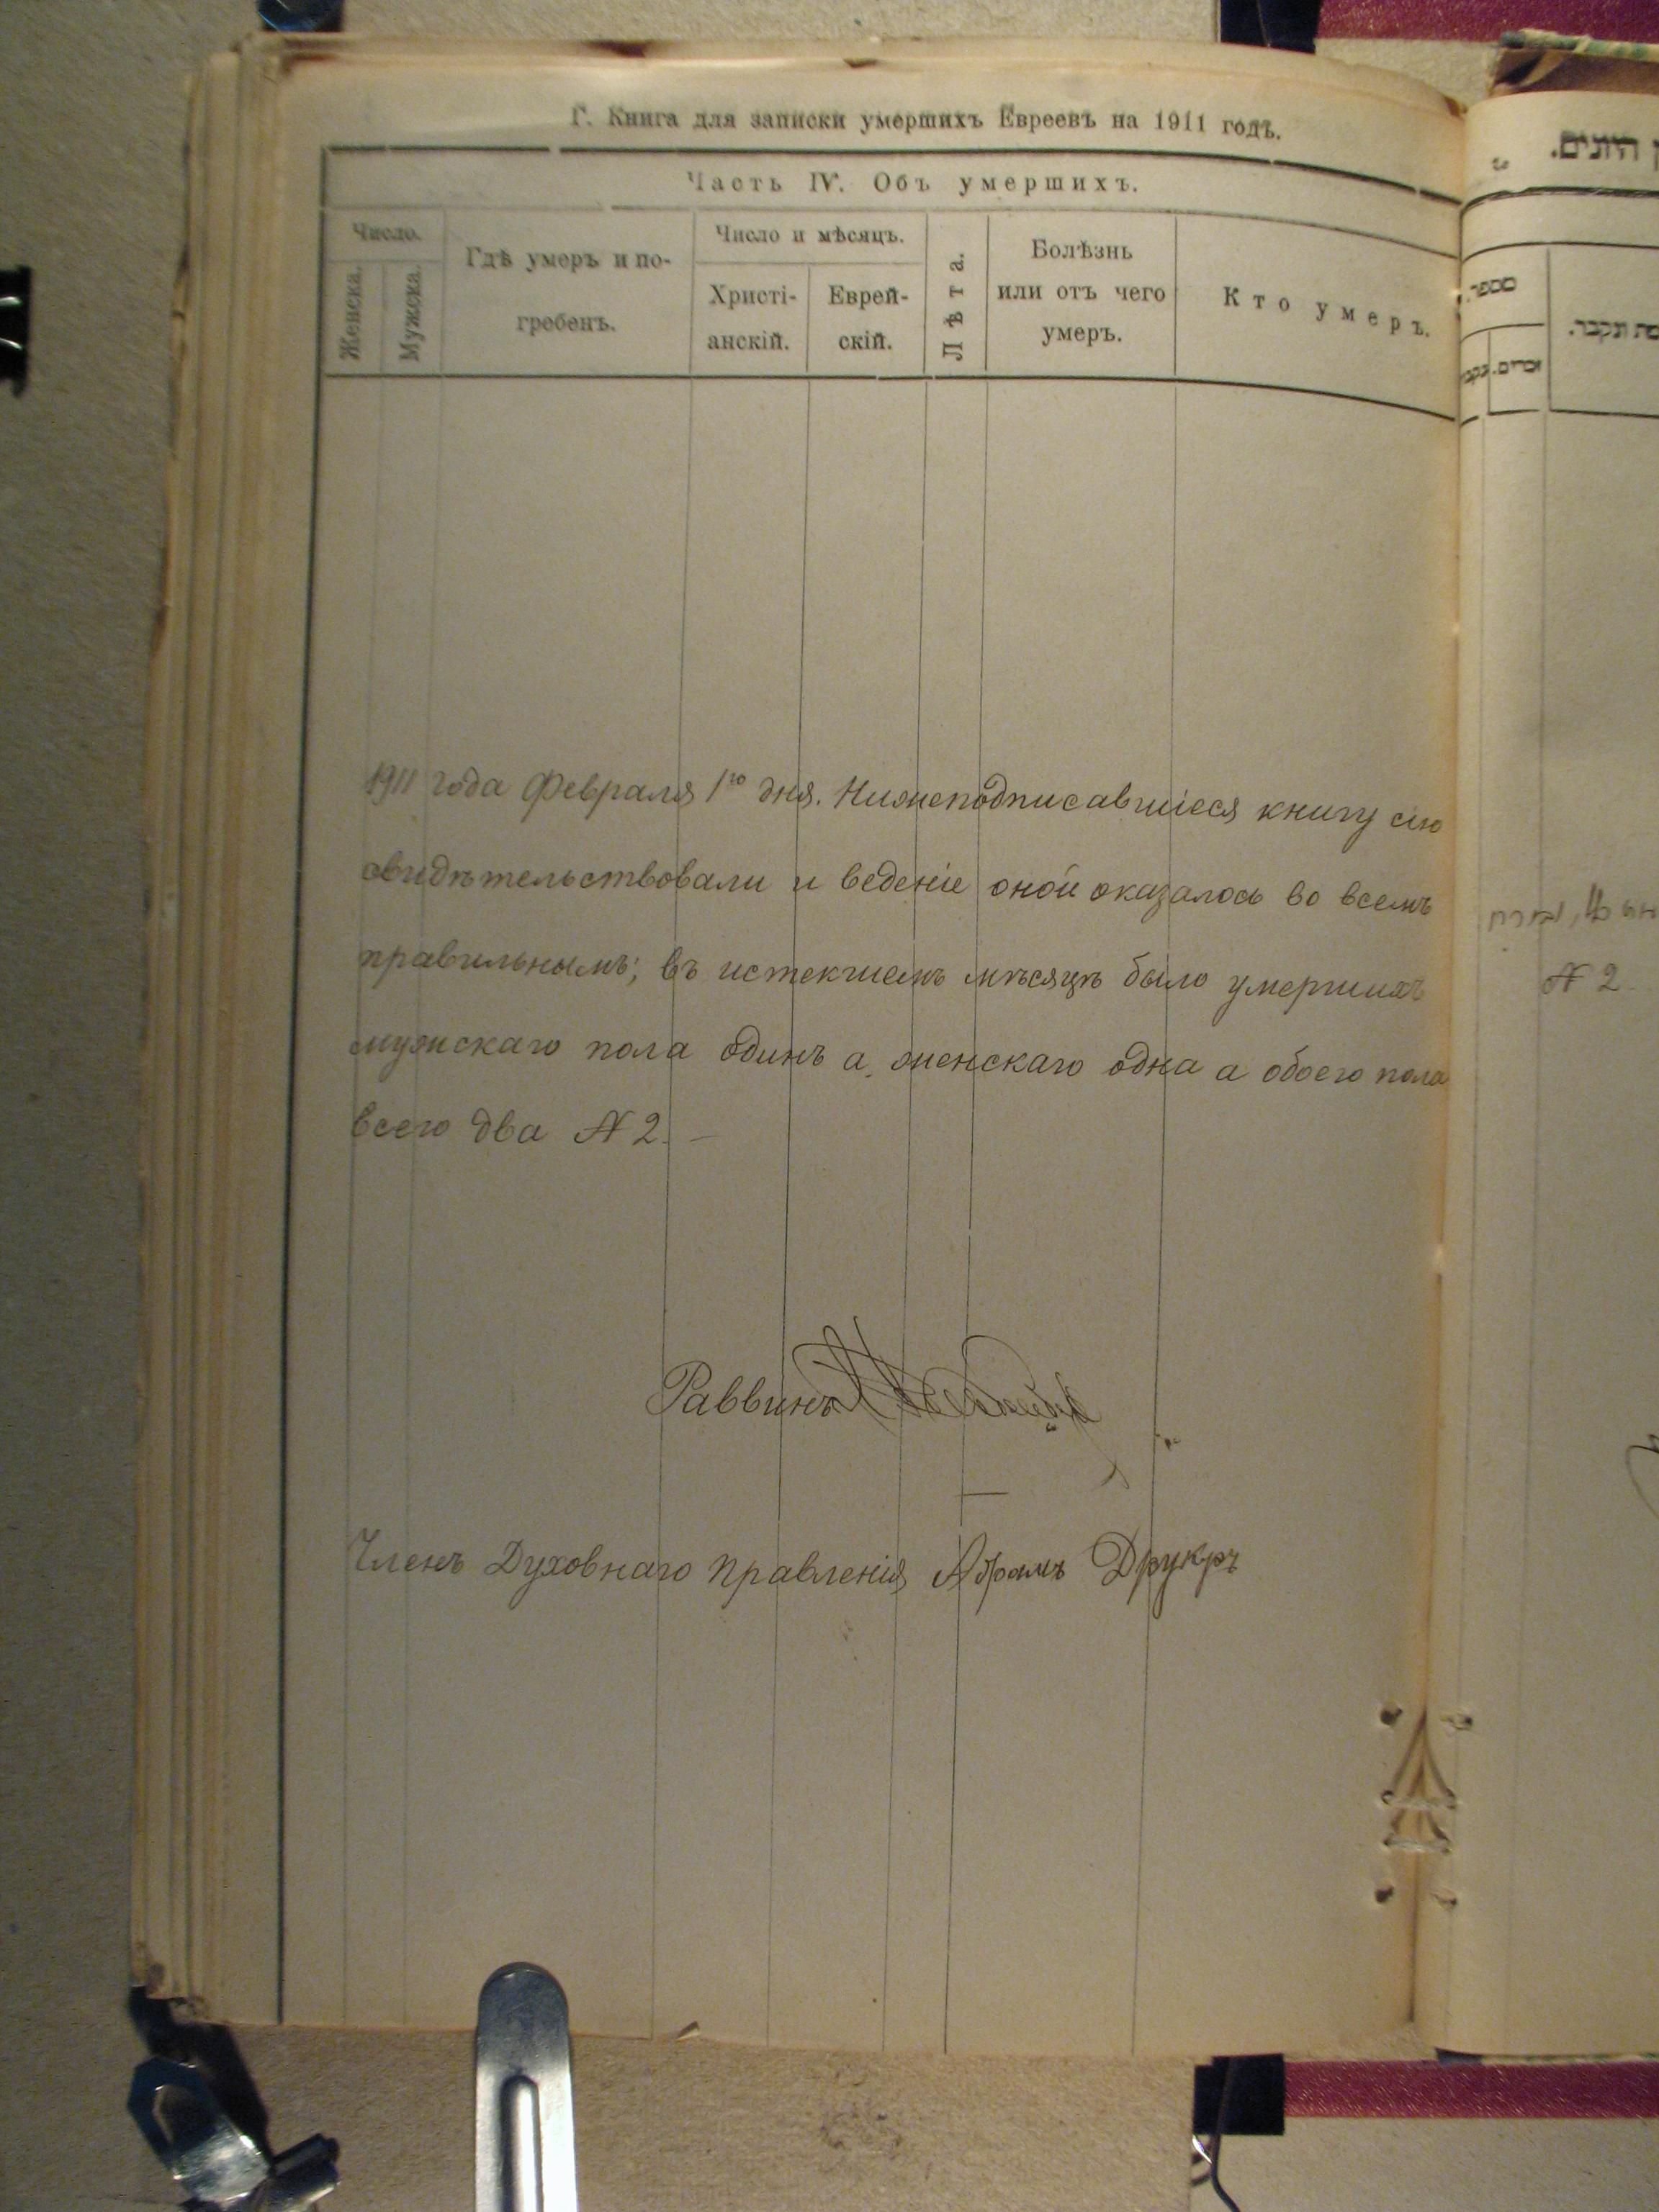 Г. Книга для записки умершихъ Евреевъ на 1911 годъ.
Часть IV. Объ умершихъ.
Число.
Женска.
Мужска.
Гдѣ умеръ и по-
гребенъ.
Число и мѣсяцъ.
Христі-
анскій.
Еврей-
скій.
Лѣта.
Болѣзнь
или отъ чего
умеръ.
Кто умеръ.
1911 года Февраля 1го дня. Нижеподписавшіеся книгу сію
свидѣтельствовали и веденіе оной оказалось во всемъ
правильнымъ; въ истекшемъ мѣсяцѣ было умершихъ
мужскаго пола одинъ а женскаго одна а обоего пола
всего два № 2. —
Раввинъ
Членъ Духовнаго Правленія Абрамъ Друкръ
מספר.
זכרים.
ונקבר.
№ 2.